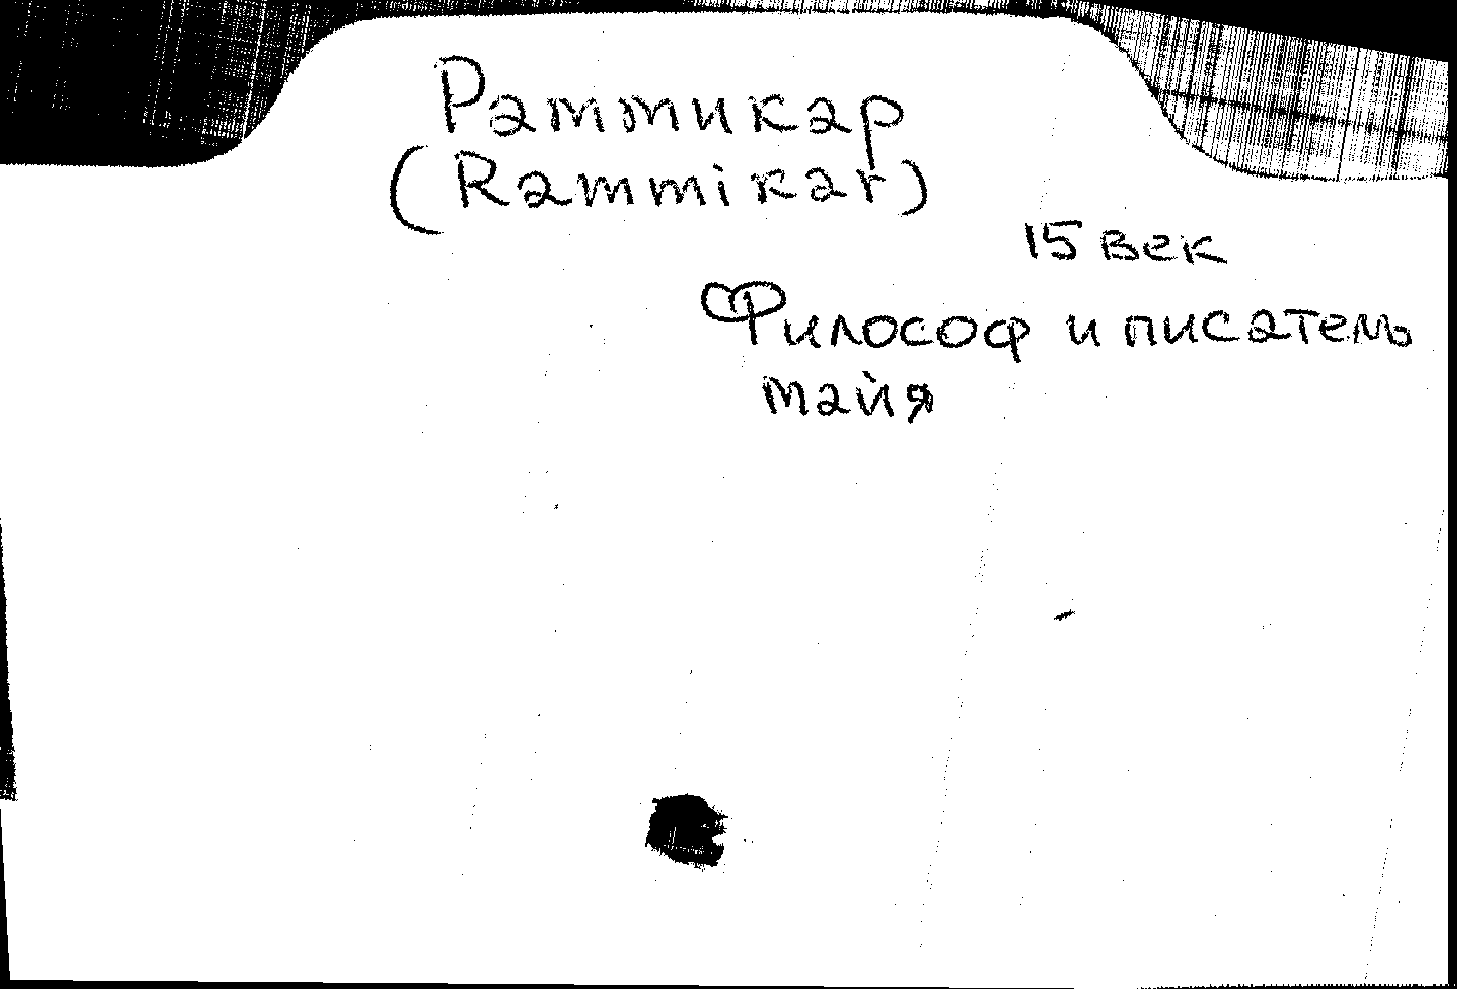 Раммикар
(Rammikar)
15 век
Философ и писатель
майя